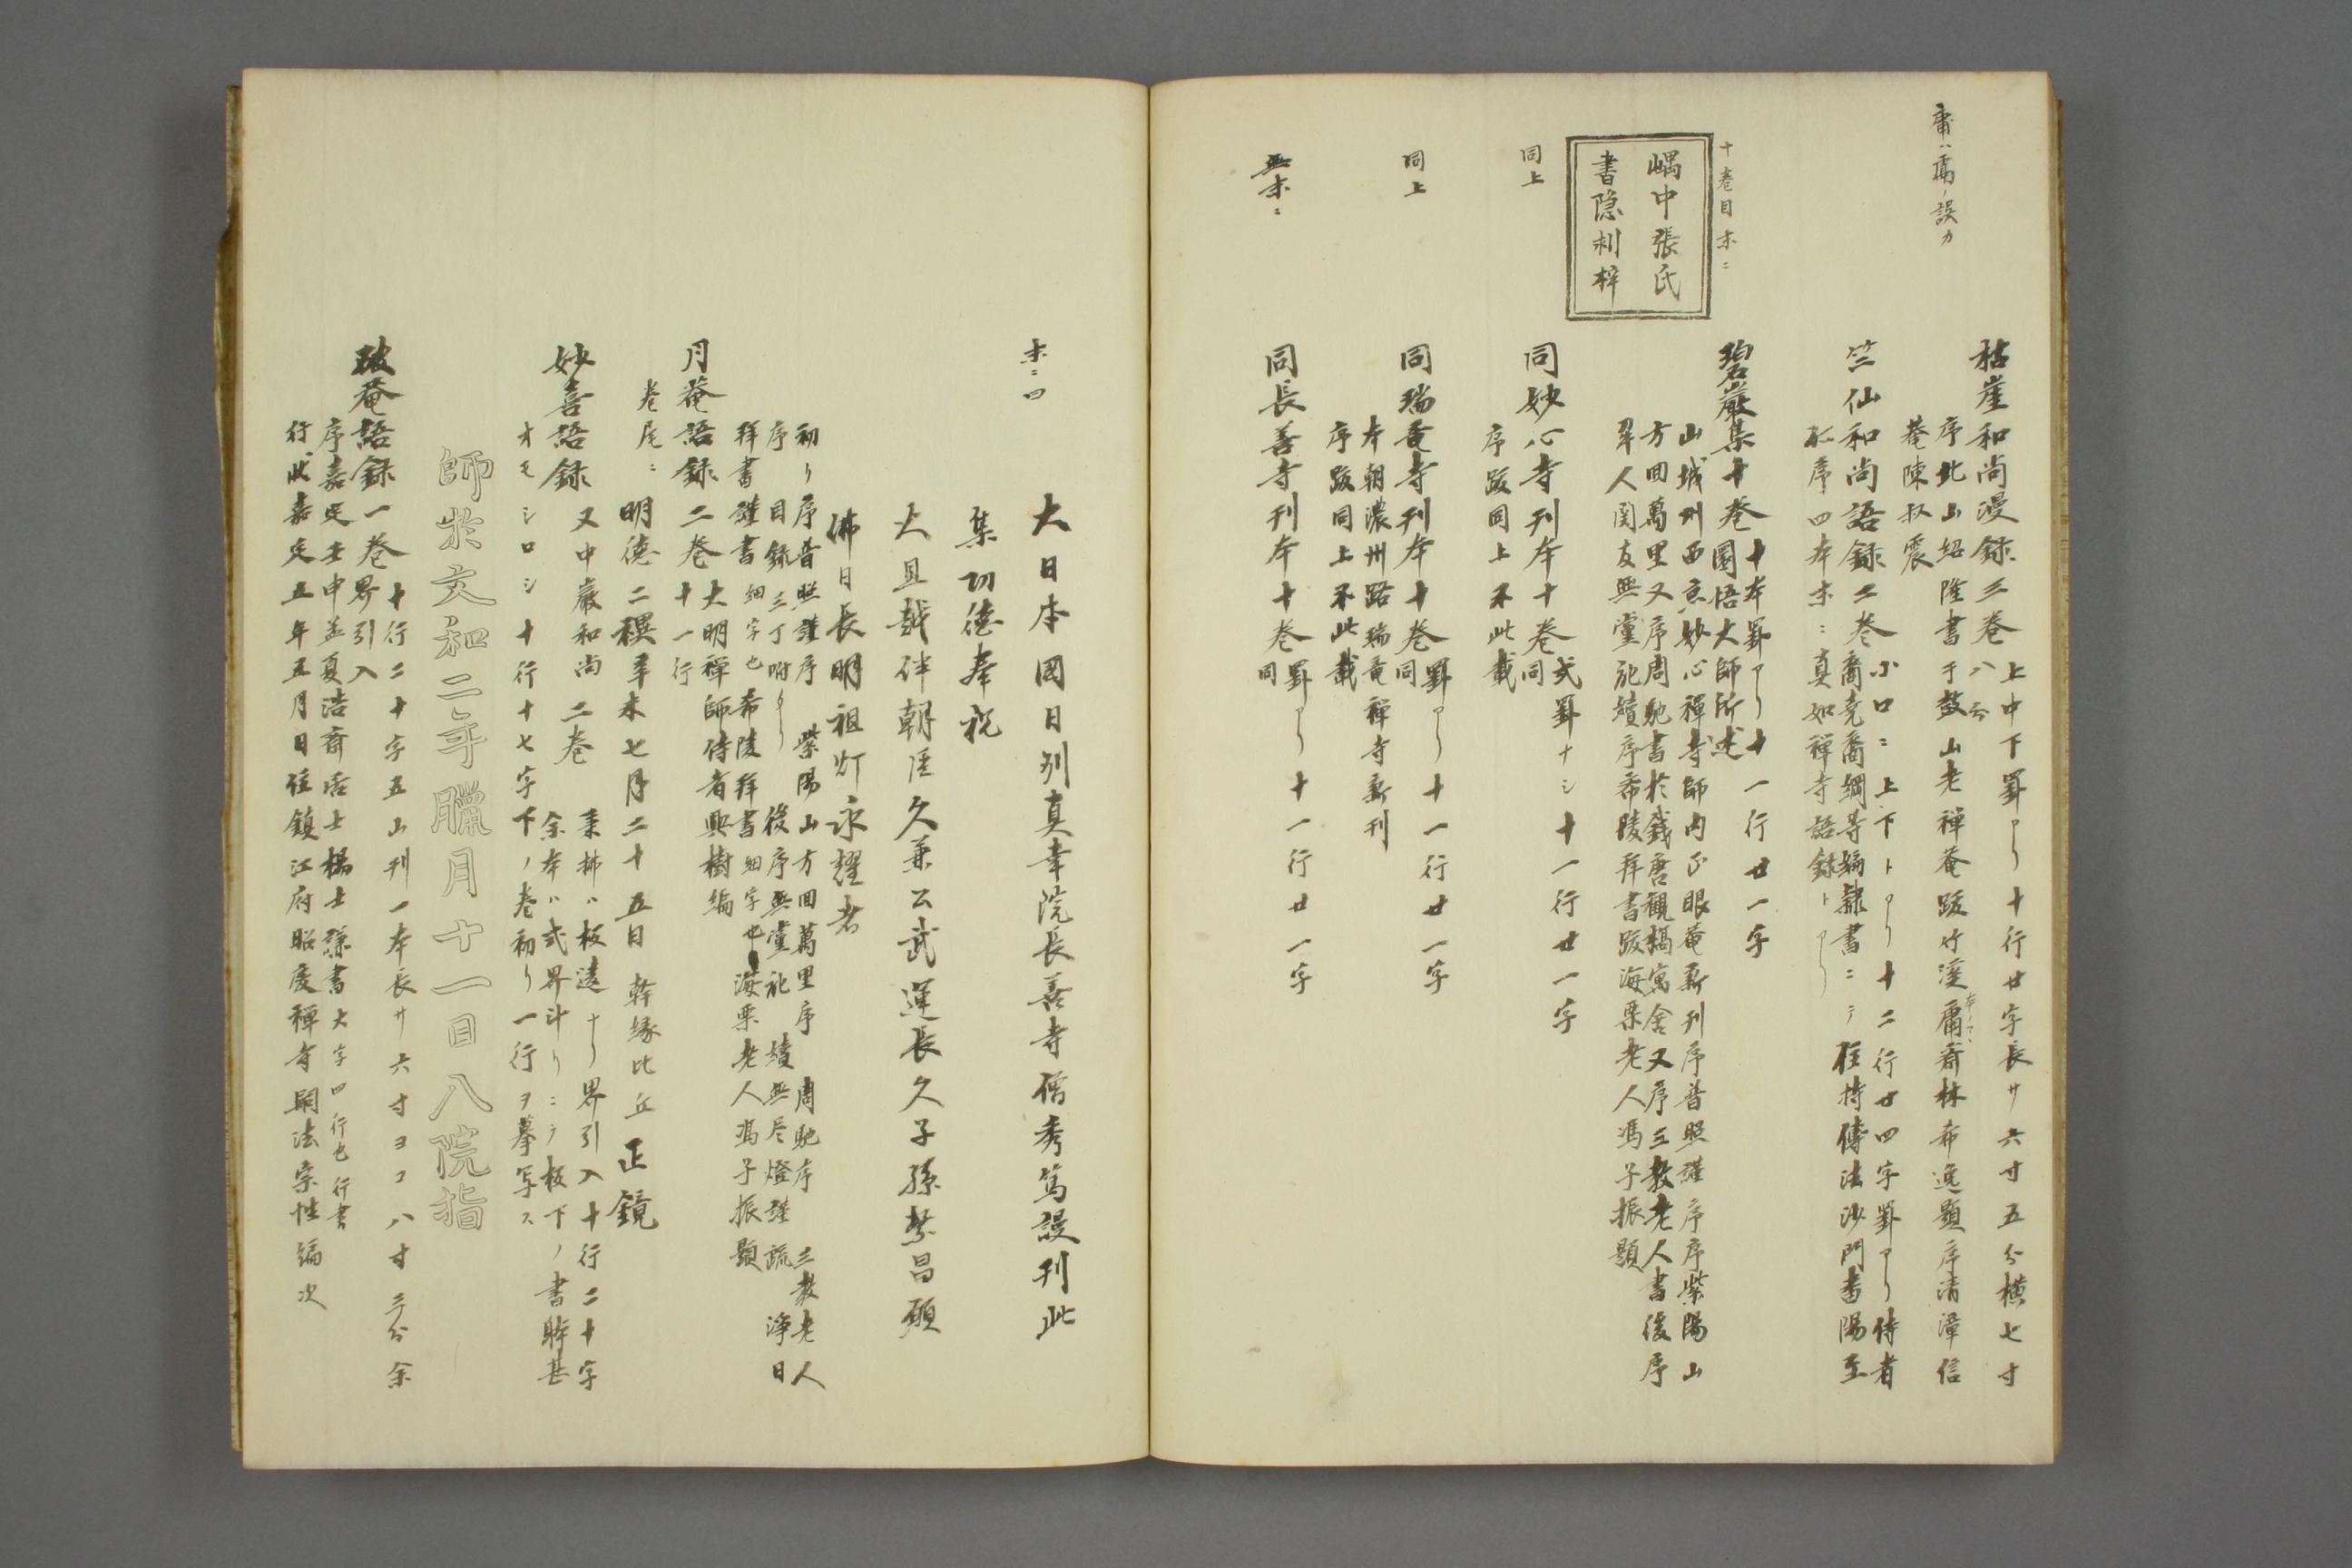 庸ハ鬳ノ誤カ
枯崖和尚漫録三巻
上中下罫アリ十行廿字長サ六寸五分横七寸
八分
序北山紹隆書于鼓山老禅菴跋竹溪庸斎林希逸題序清漳信
菴陳叔震
竺仙和尚語録二巻
小口ニ上下トアリ十二行廿四字罫アリ侍者
裔尭裔綱等編隷書ニテ住持傳法沙門書陽至
序四本末ニ真如禅寺語録トアリ
十巻目末ニ
嵎中張氏
書隠刹梓
碧巌集十巻
十本罫アリ十一行廿一字
圜悟大師所述
山城州西京妙心禅寺師内正眼菴新刊序普照謹序序紫陽山
方回萬里又序周馳書於錢唐觀橋寓舎又序三教老人書後序
翠人関友無黨記績序希陵拝書跋海粟老人馮子振題
同上
同妙心寺刊本十巻
弐罫ナシ十一行廿一字
同
序跋同上不此載
同上
同瑞竜寺刊本十巻
罫アリ十一行廿一字
同
本朝濃州路瑞竜禅寺新刊
序跋同上不此載
無末ニ
同長善寺刊本十巻
罫アリ十一行廿一字
同
末ニ曰
大日本國日列真幸院長善寺僧秀篤謾刊此
集功徳奉祝
大旦越伴朝臣久兼公武運長久子孫繁昌願
佛日長明祖灯永耀者
初リ序普照謹序 紫陽山方回萬里序 周馳序 三教老人
序 目録三丁附アリ 後序無黨記 績無尽燈謹疏 淨日
拝書謹書細字也希陵拝書細字也海粟老人馮子振題
月菴語録二巻
大明禅師侍者興樹編
十一行
巻尾ニ 明徳二禩辛未七月二十五日 幹縁比丘正鏡
妙喜語録
又中巌和尚 二巻
秉拂ハ板違ナリ界引入十行二十字
余本ハ弐界斗リニテ板下ノ書眸甚
オモシロシ十行十七字下ノ巻初リ一行ヲ摹写ス
師於文和二年臘月十一日八院指
破菴語録一巻
十行二十字五山刊一本長サ六寸ヨコ八寸三分余
界引入
序嘉定壬申孟夏浩斎居士楊士孫書大字四行也行書
行状嘉定五年五月日住鎮江府昭慶禅寺嗣法宗性編次